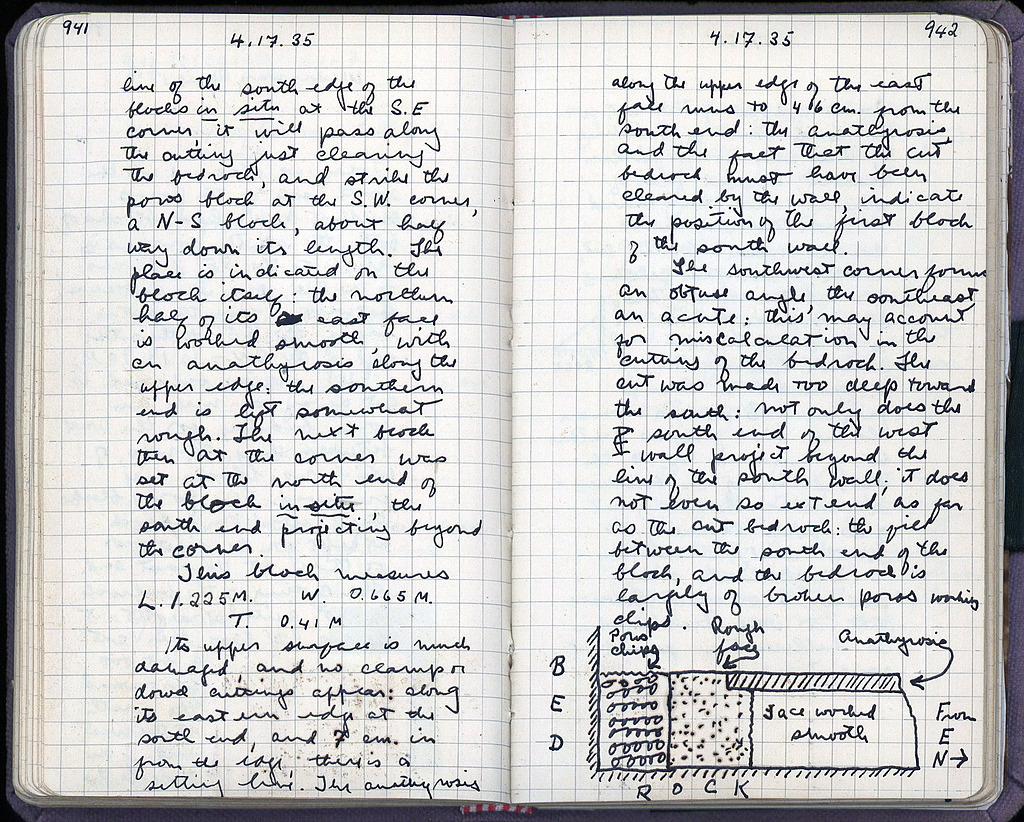 941
4.17.35
line of the south edge of the
blocks in situ at the S.E
corner, it will pass along
the cutting just clearing
the bedrock, and strike the
poros block at the S.W. corner,
a N-S block, about half
way down its length. The
place is indicated on the
block itself: the northern
half of its east face
is worked smooth, with
an anathyrosis along the
upper edge: the southern
end is left somewhat
rough. The next block
then at the corner was
set at the north end of
the block in situ, the
south end projecting beyond
the corner.
This block measures
L. 1.225 M. W. 0.665 M.
T. 0.41 M
Its upper surface is much
damaged, and no clamp or
dowel cuttings appear: along
its eastern edge at the
south end, and 7 cm. in
from the edge there is a
setting line. The anathyrosis
942
4.17.35
along the upper edge of the east
face runs to 46 cm. from the
south end: the anathyrosis,
and the fact that the cut
bedrock must have been
cleared by the wall, indicate
the position of the first block
of the south wall.
The southwest corner forms
an obtuse angle, the southeast
an acute: this may account
for miscalculation in the
cutting of the bedrock. The
cut was made too deep toward
the south: not only does the
south end of the west
wall project beyond the
line of the south wall, it does
not even so extend as far
as the cut bedrock: the fill
between the south end of the
block, and the bedrock is
largely of broken poros working
chips.
Poros
chips
Rough
face
Anathyrosis
BED
Face worked
smooth
From
E
N→
ROCK